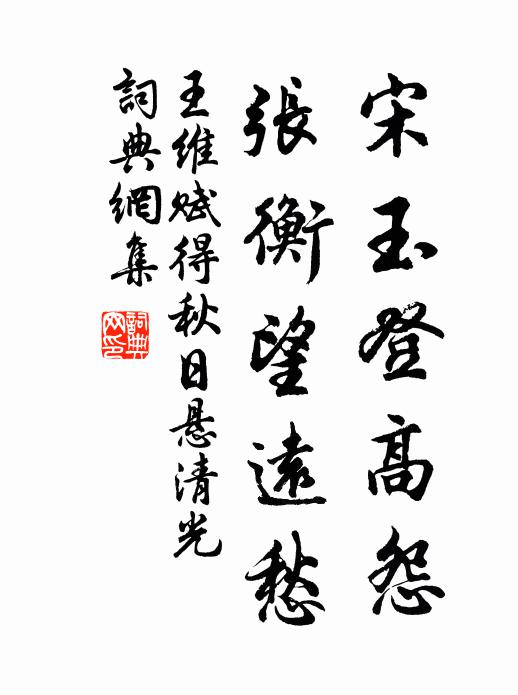 宋玉登高怨
張衡望遠愁
王維赋得秋日悬清光
詞典網集
詞典网印